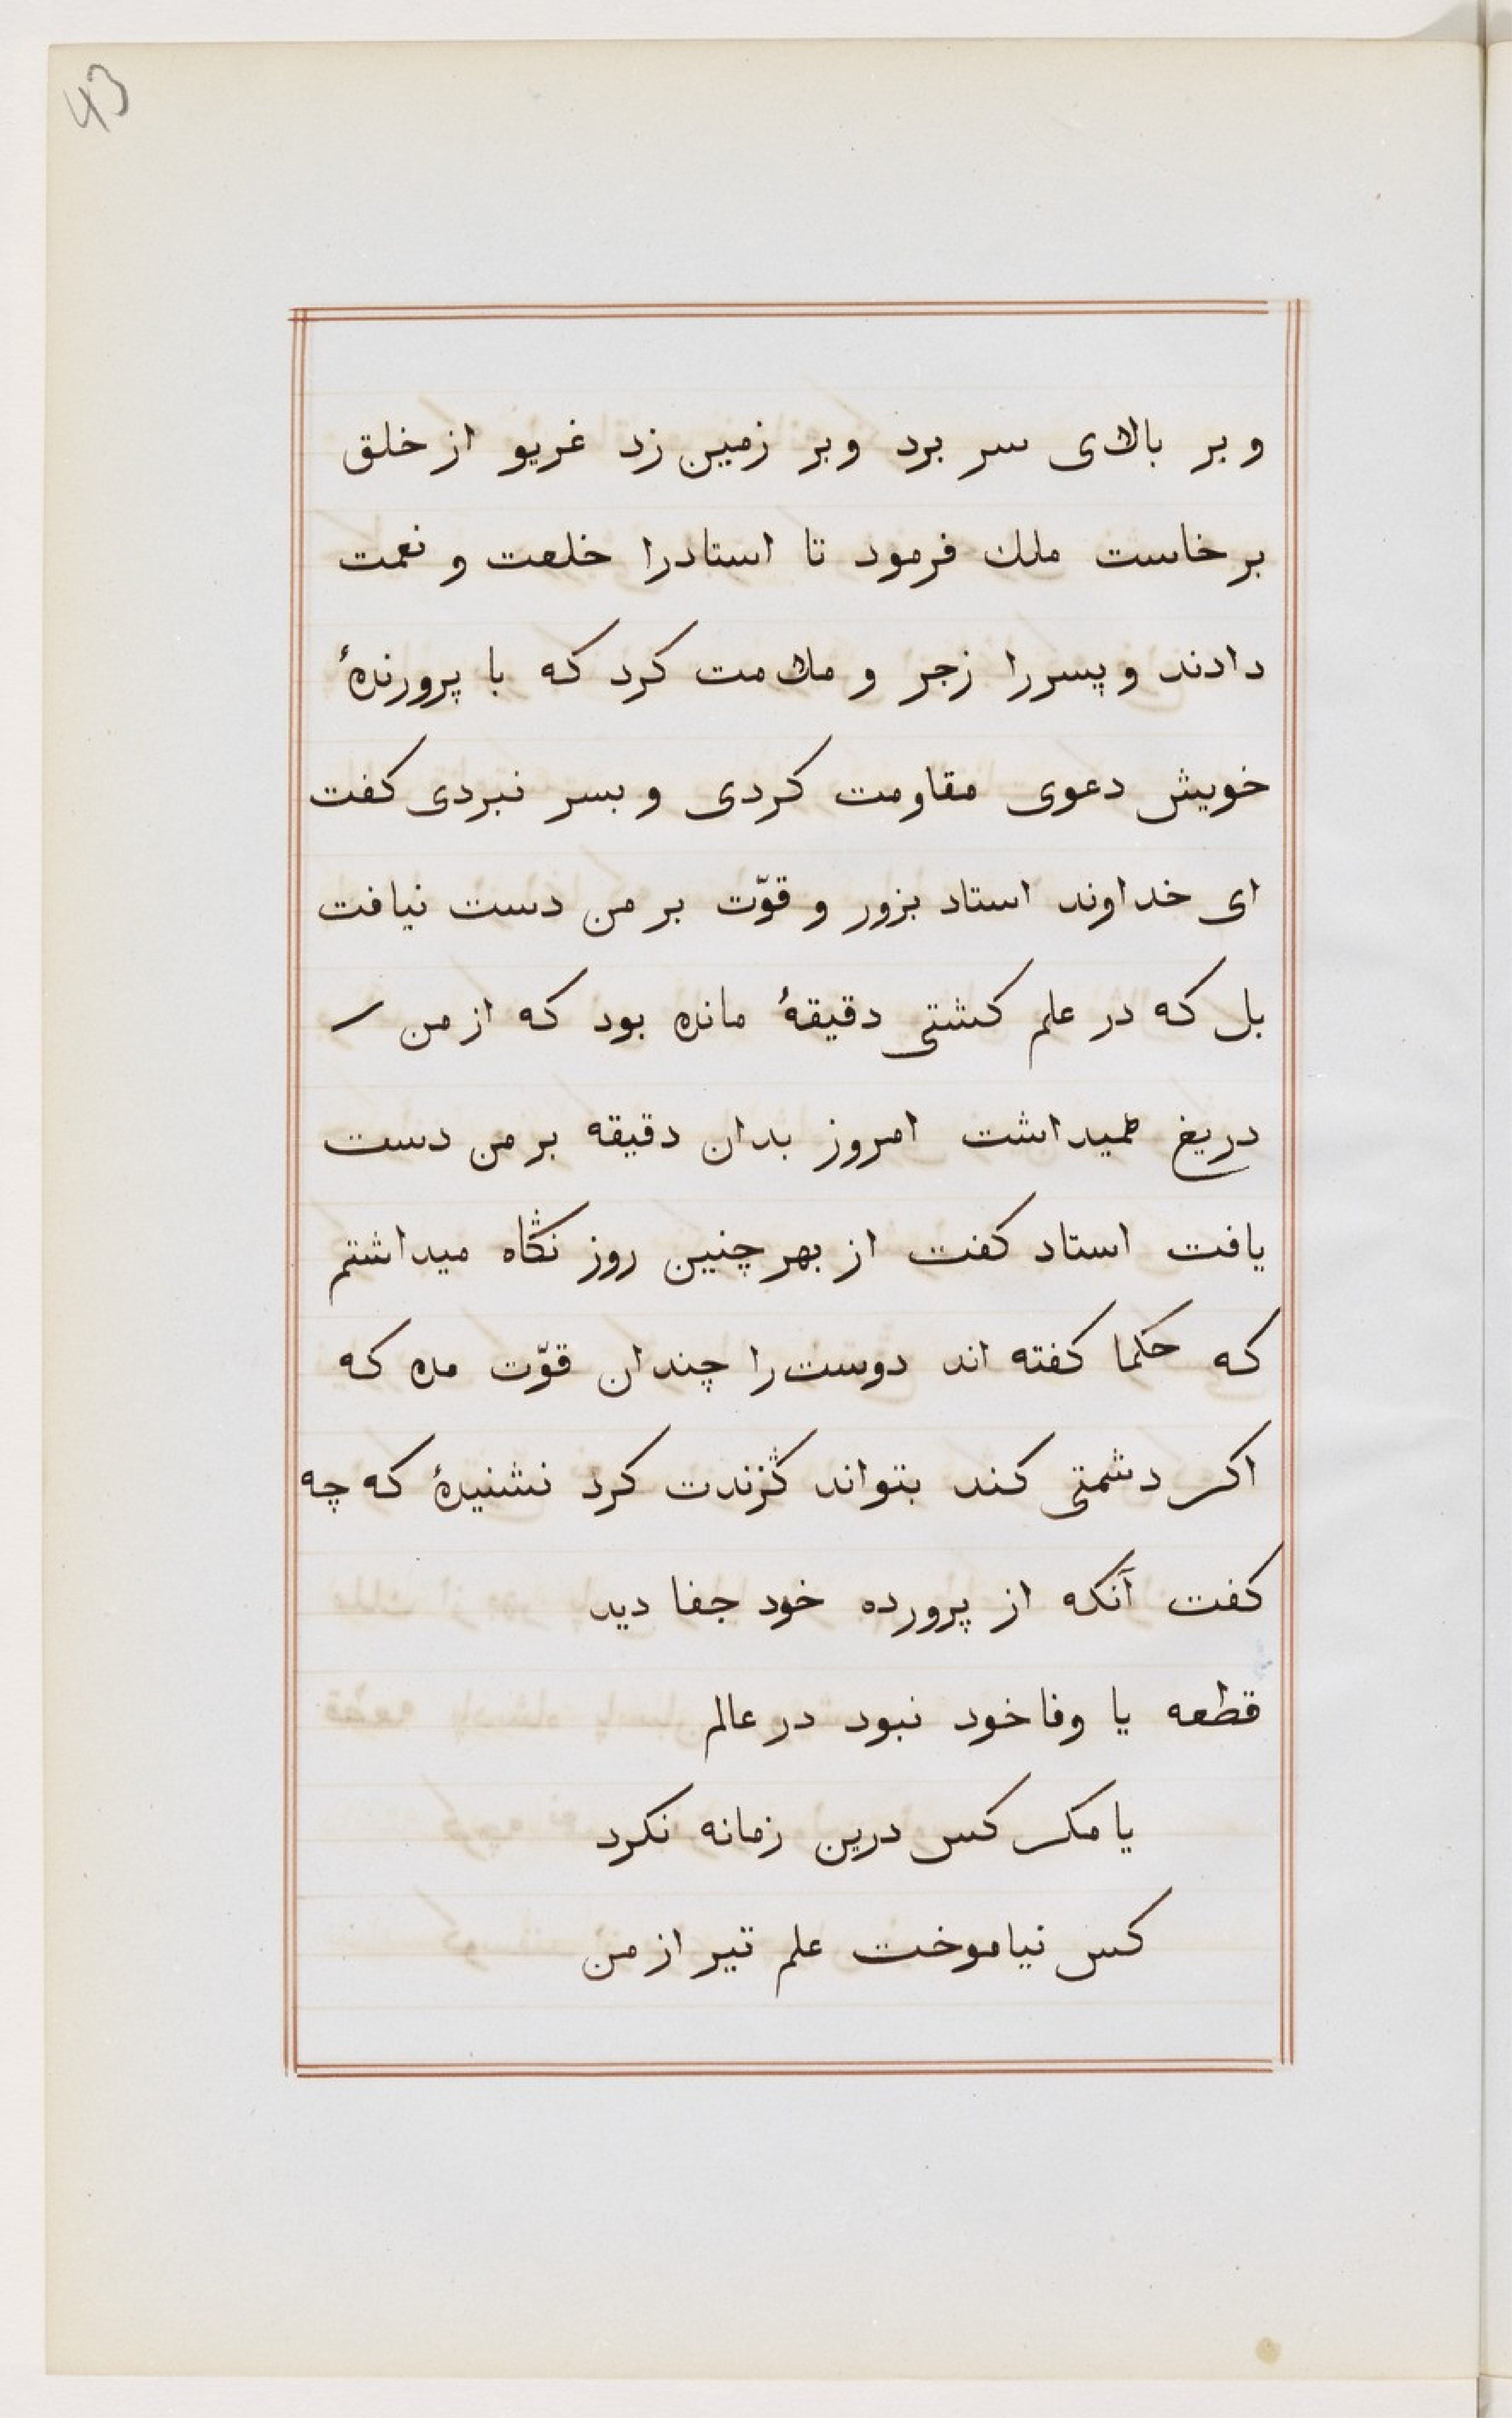 43
و بر بالای سر برد وبر زمین زد غریو از خلق
بر خاست ملك فرمود تا استادرا خلعت و نعمت
دادند و پسررا زجر و ملامت کرد که با پرورندهٔ
خویش دعوی مقاومت کردی و بسر نبردی کفت
ای خداوند استاد بزور و قوّت بر من دست نیافت
بل که در علم کشتی دقیقهٔ مانده بود که از من
دریغ همیداشت امروز بدان دقیقه بر من دست
یافت استاد کفت از بهر چنین روز نڭاه میداشتم
که حکما کفته اند دوست را چندان قوّت مده که
اکر دشمتی کند بتواند ڭزندت کرد نشنیدهٔ که چه
کفت آنکه از پرورده خود جفا دید
قطعه یا وفا خود نبود در عالم
یا مکر کس درین زمانه نکرد
کس نیاموخت علم تیر از من